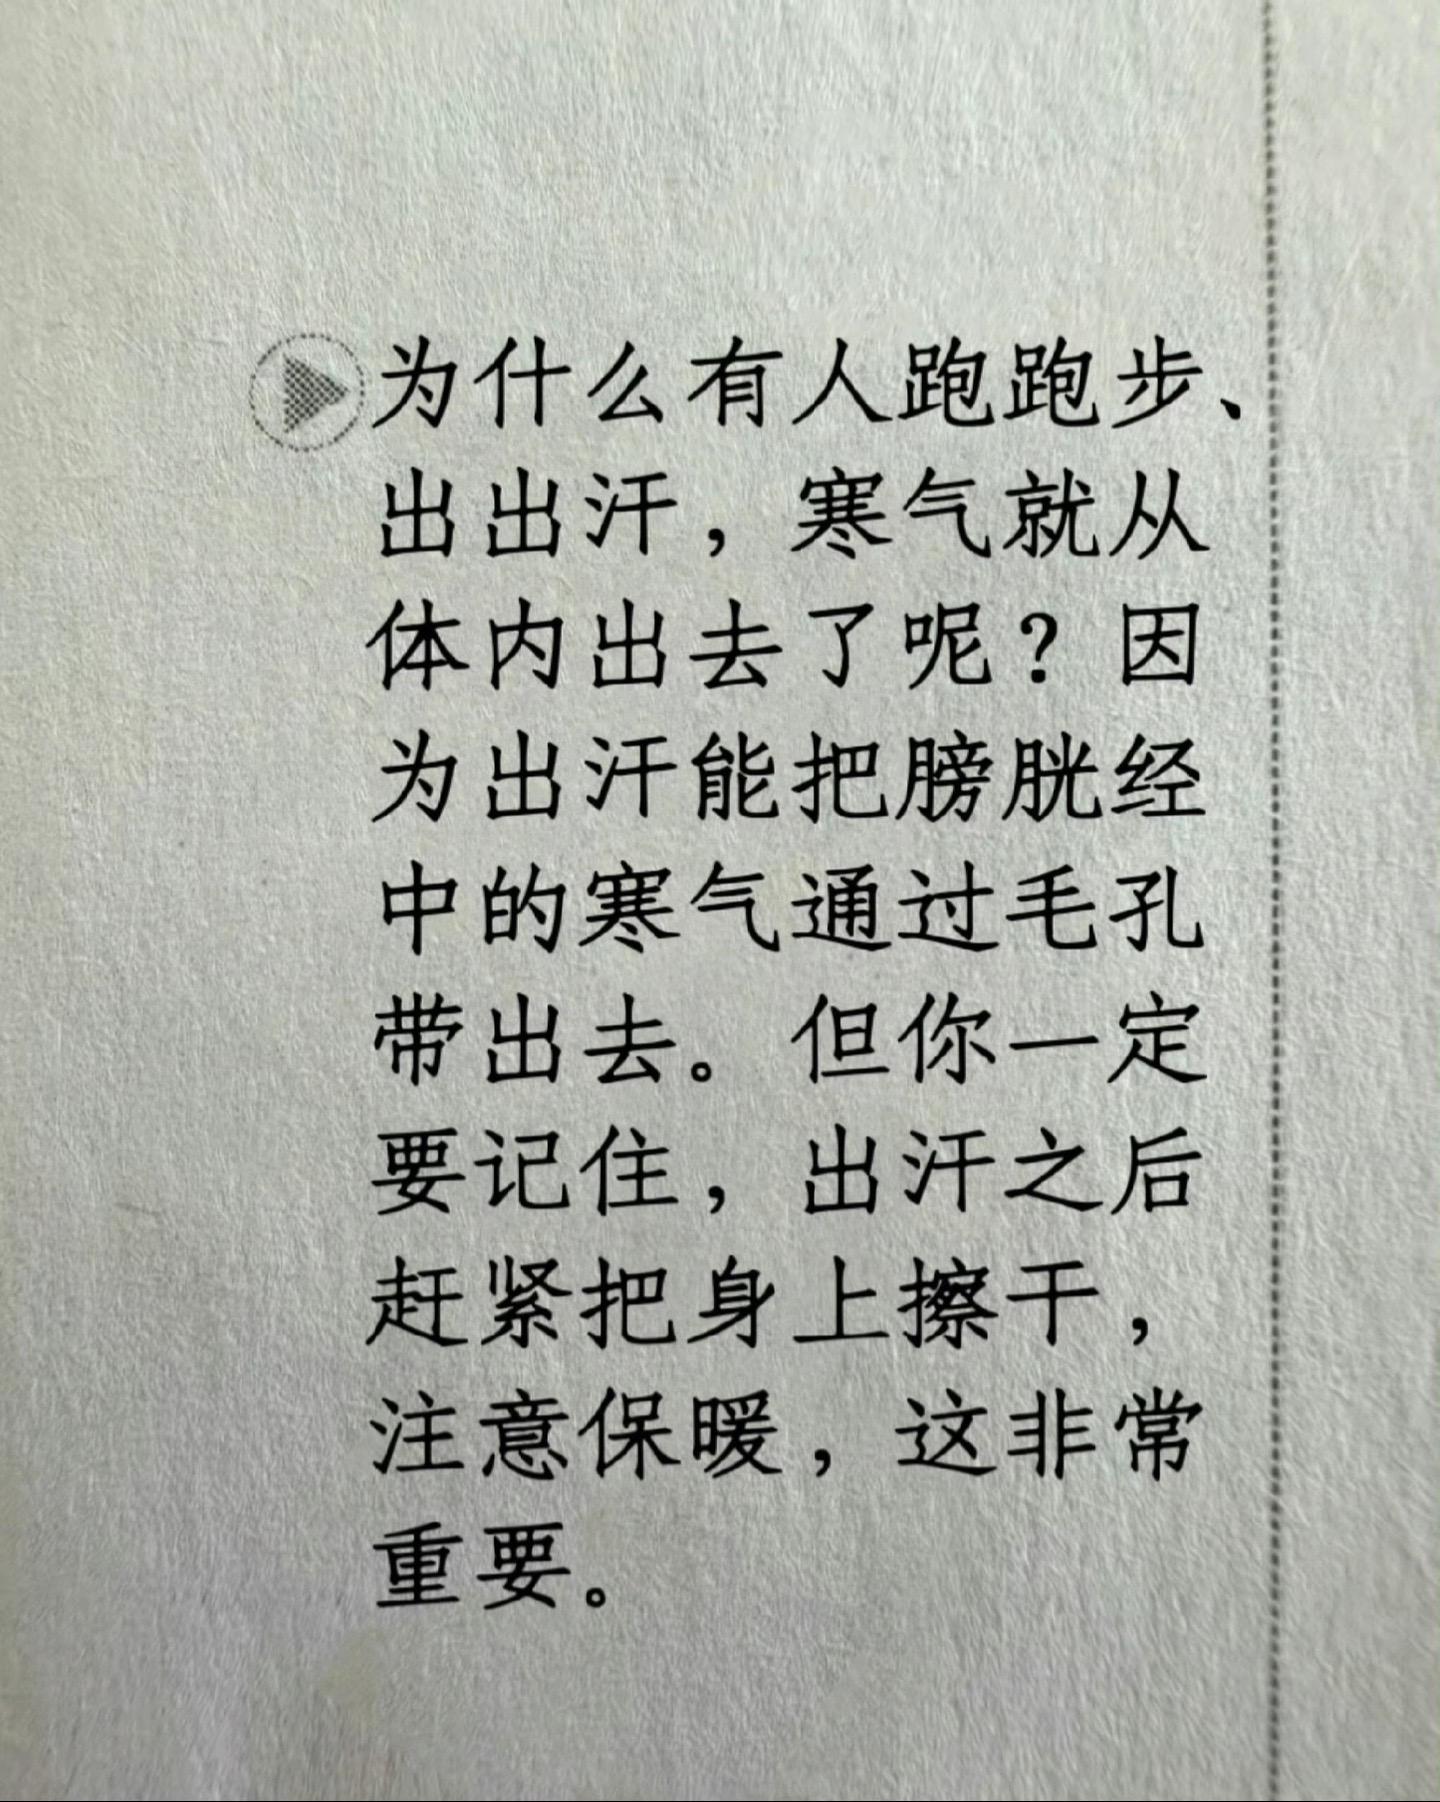 为什么有人跑跑步、
出出汗，寒气就从
体内出去了呢？因
为出汗能把膀胱经
中的寒气通过毛孔
带出去。但你一定
要记住，出汗之后
赶紧把身上擦干，
注意保暖，这非常
重要。